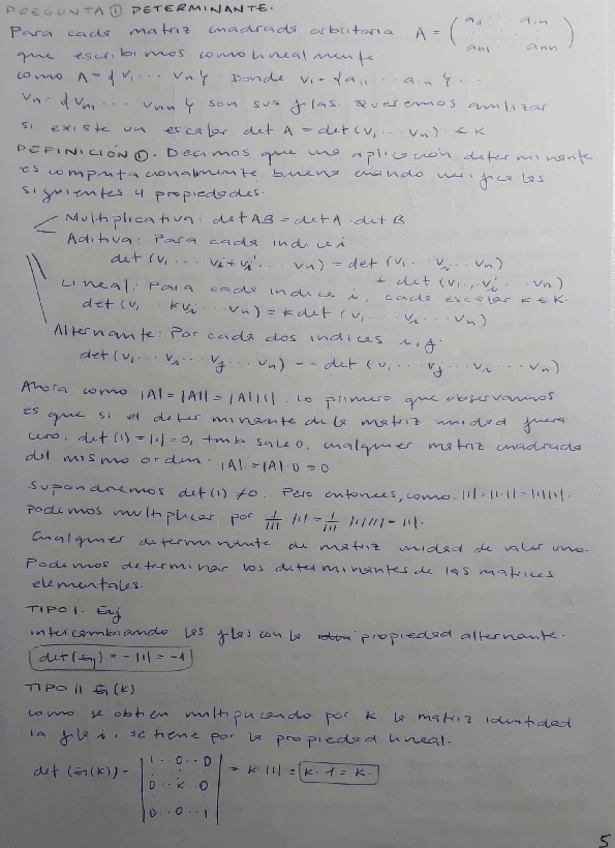 PREGUNTA ① DETERMINANTE.
Para cada matriz cuadrada arbitraria A = ( a11 ··· a1n
an1 ··· ann )
que escribimos como linealmente
como A = { v1 ··· vn }. Donde v1 = { a11 ··· a1n } ...
vn = { vn1 ··· vnn } son sus filas. Queremos analizar
si existe un escalar det A = det (v1 ··· vn) ∈ K
DEFINICIÓN ①. Decimos que una aplicación determinante
es computacionalmente buena cuando verifica las
siguientes 4 propiedades.
Multiplicativa: det AB = det A · det B
Aditiva: Para cada indice i
det (v1 ··· vi + vi' ··· vn) = det (v1 ·· vi ·· vn)
+ det (v1 ·· vi' ·· vn)
Lineal: Para cada indice i, cada escalar k ∈ K.
det (v1 ·· kvi ·· vn) = k det (v1 ·· vi ·· vn)
Alternante: Por cada dos indices i, j.
det (v1 ·· vi ·· vj ·· vn) = - det (v1 ·· vj ·· vi ·· vn)
Ahora como |A| = |A1| = |A||1|. Lo primero que observamos
es que si el determinante de la matriz unidad fuera
cero. det (1) = |1| = 0, tmb sale 0, cualquier matriz cuadrada
del mismo orden. |A| = |A| · 0 = 0
Supondremos det (1) ≠ 0. Pero entonces, como |1| = |1·1| = |1||1|.
Podemos multiplicar por 1/|1| |1| = 1/|1| |1||1| = |1|.
Cualquier determinante de matriz unidad de valer uno.
Podemos determinar los determinantes de las matrices
elementales.
TIPO I. Eij
intercambiando las filas con la propiedad alternante.
det (Eij) = - |1| = -1
TIPO II Ei (K)
como se obtien multiplicando por K la matriz identidad
la fila i. se tiene por la propiedad lineal.
det (Ei(K)) = | 1 ·· 0 ·· 0
0 ·· K ·· 0
0 ·· 0 ·· 1 | = K · |1| = K · 1 = K.
5